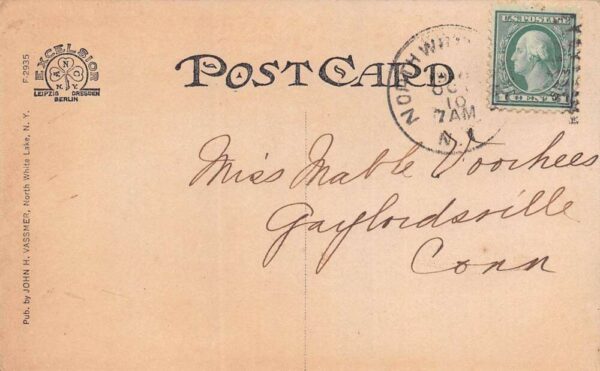 EXCELSIOR
A N C
N.Y.
LEIPZIG DRESDEN
BERLIN
F-2935
Pub. by JOHN H. VASSMER, North White Lake, N. Y.
POST CARD
NORTH
OCT
10
7AM
N.Y.
U.S. POSTAGE
1 CENT 1
Miss Mable Voorhees
Gaylordsville
Conn